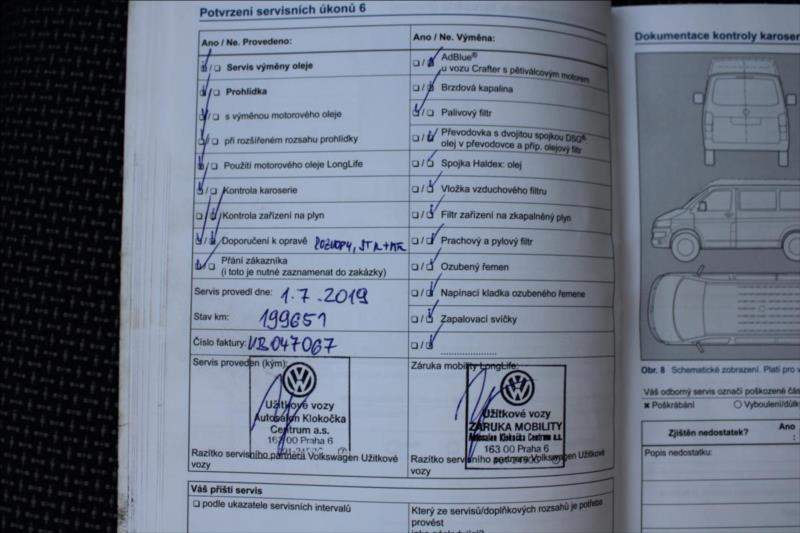 Potvrzení servisních úkonů 6
Ano / Ne. Provedeno:
☐ / ☐ Servis výměny oleje
☐ / ☐ Prohlídka
☐ / ☐ s výměnou motorového oleje
☐ / ☐ při rozšířeném rozsahu prohlídky
☐ / ☐ Použití motorového oleje LongLife
☐ / ☐ Kontrola karoserie
☐ / ☐ Kontrola zařízení na plyn
☐ / ☐ Doporučení k opravě
☐ / ☐ Přání zákazníka
(i toto je nutné zaznamenat do zakázky)
Servis provedl dne: 1.7.2019
Stav km: 199651
Číslo faktury: VB047067
Servis proveden (kým):
Užitkové vozy
Autosalon Klokočka
Centrum a.s.
Praha 6
Razítko servisního partnera Volkswagen Užitkové
vozy
Ano / Ne. Výměna:
☐ / ☐ AdBlue®
u vozu Crafter s pětiválcovým motorem
☐ / ☐ Brzdová kapalina
☐ / ☐ Palivový filtr
☐ / ☐ Převodovka s dvojitou spojkou DSG®:
olej v převodovce a příp. olejový filtr
☐ / ☐ Spojka Haldex: olej
☐ / ☐ Vložka vzduchového filtru
☐ / ☐ Filtr zařízení na zkapalněný plyn
☐ / ☐ Prachový a pylový filtr
☐ / ☐ Ozubený řemen
☐ / ☐ Napínací kladka ozubeného řemene
☐ / ☐ Zapalovací svíčky
☐ / ☐ ....................
Záruka mobility LongLife:
Užitkové vozy
ZÁRUKA MOBILITY
Autosalon Klokočka Centrum a.s.
163 00 Praha 6
Razítko servisního partnera Volkswagen Užitkové
vozy
Váš příští servis
☐ podle ukazatele servisních intervalů
Který ze servisů/doplňkových rozsahů je potřeba
provést
Dokumentace kontroly karoser
Obr. 8 Schematické zobrazení. Platí pro v
Váš odborný servis označí poškozené čás
✖ Poškrábání
○ Vyboulení/důlk
Zjištěn nedostatek?
Ano
Popis nedostatku: